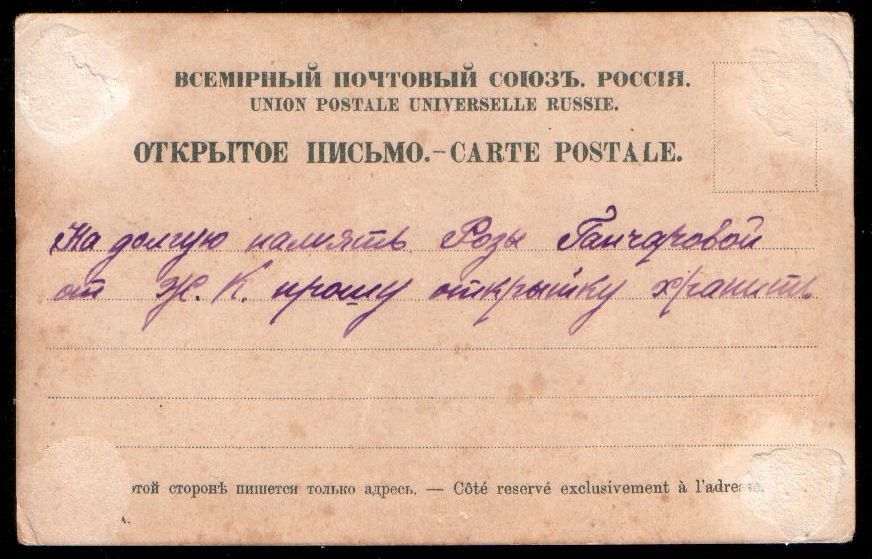 ВСЕМІРНЫЙ ПОЧТОВЫЙ СОЮЗЪ. РОССІЯ.
UNION POSTALE UNIVERSELLE RUSSIE.
ОТКРЫТОЕ ПИСЬМО.-CARTE POSTALE.
На долгую память Розы Ганчаровой
от Ж. К. прошу открытку хранить
этой сторонѣ пишется только адресъ. — Côté reservé exclusivement à l'adresse.